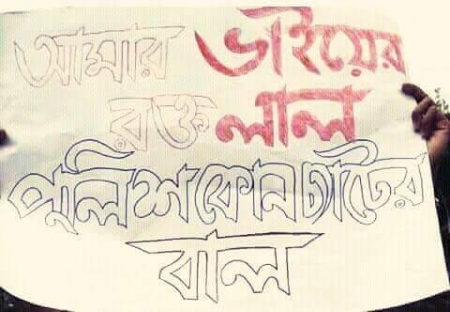 আমার ভাইয়ের
রক্ত লাল
পুলিশ কোন চ্যাটের
বাল